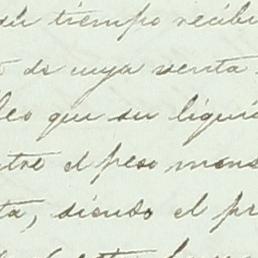 su tiempo recibi
de cuya venta
leo que su liqui
tre el peso mens
ta, siendo el pr